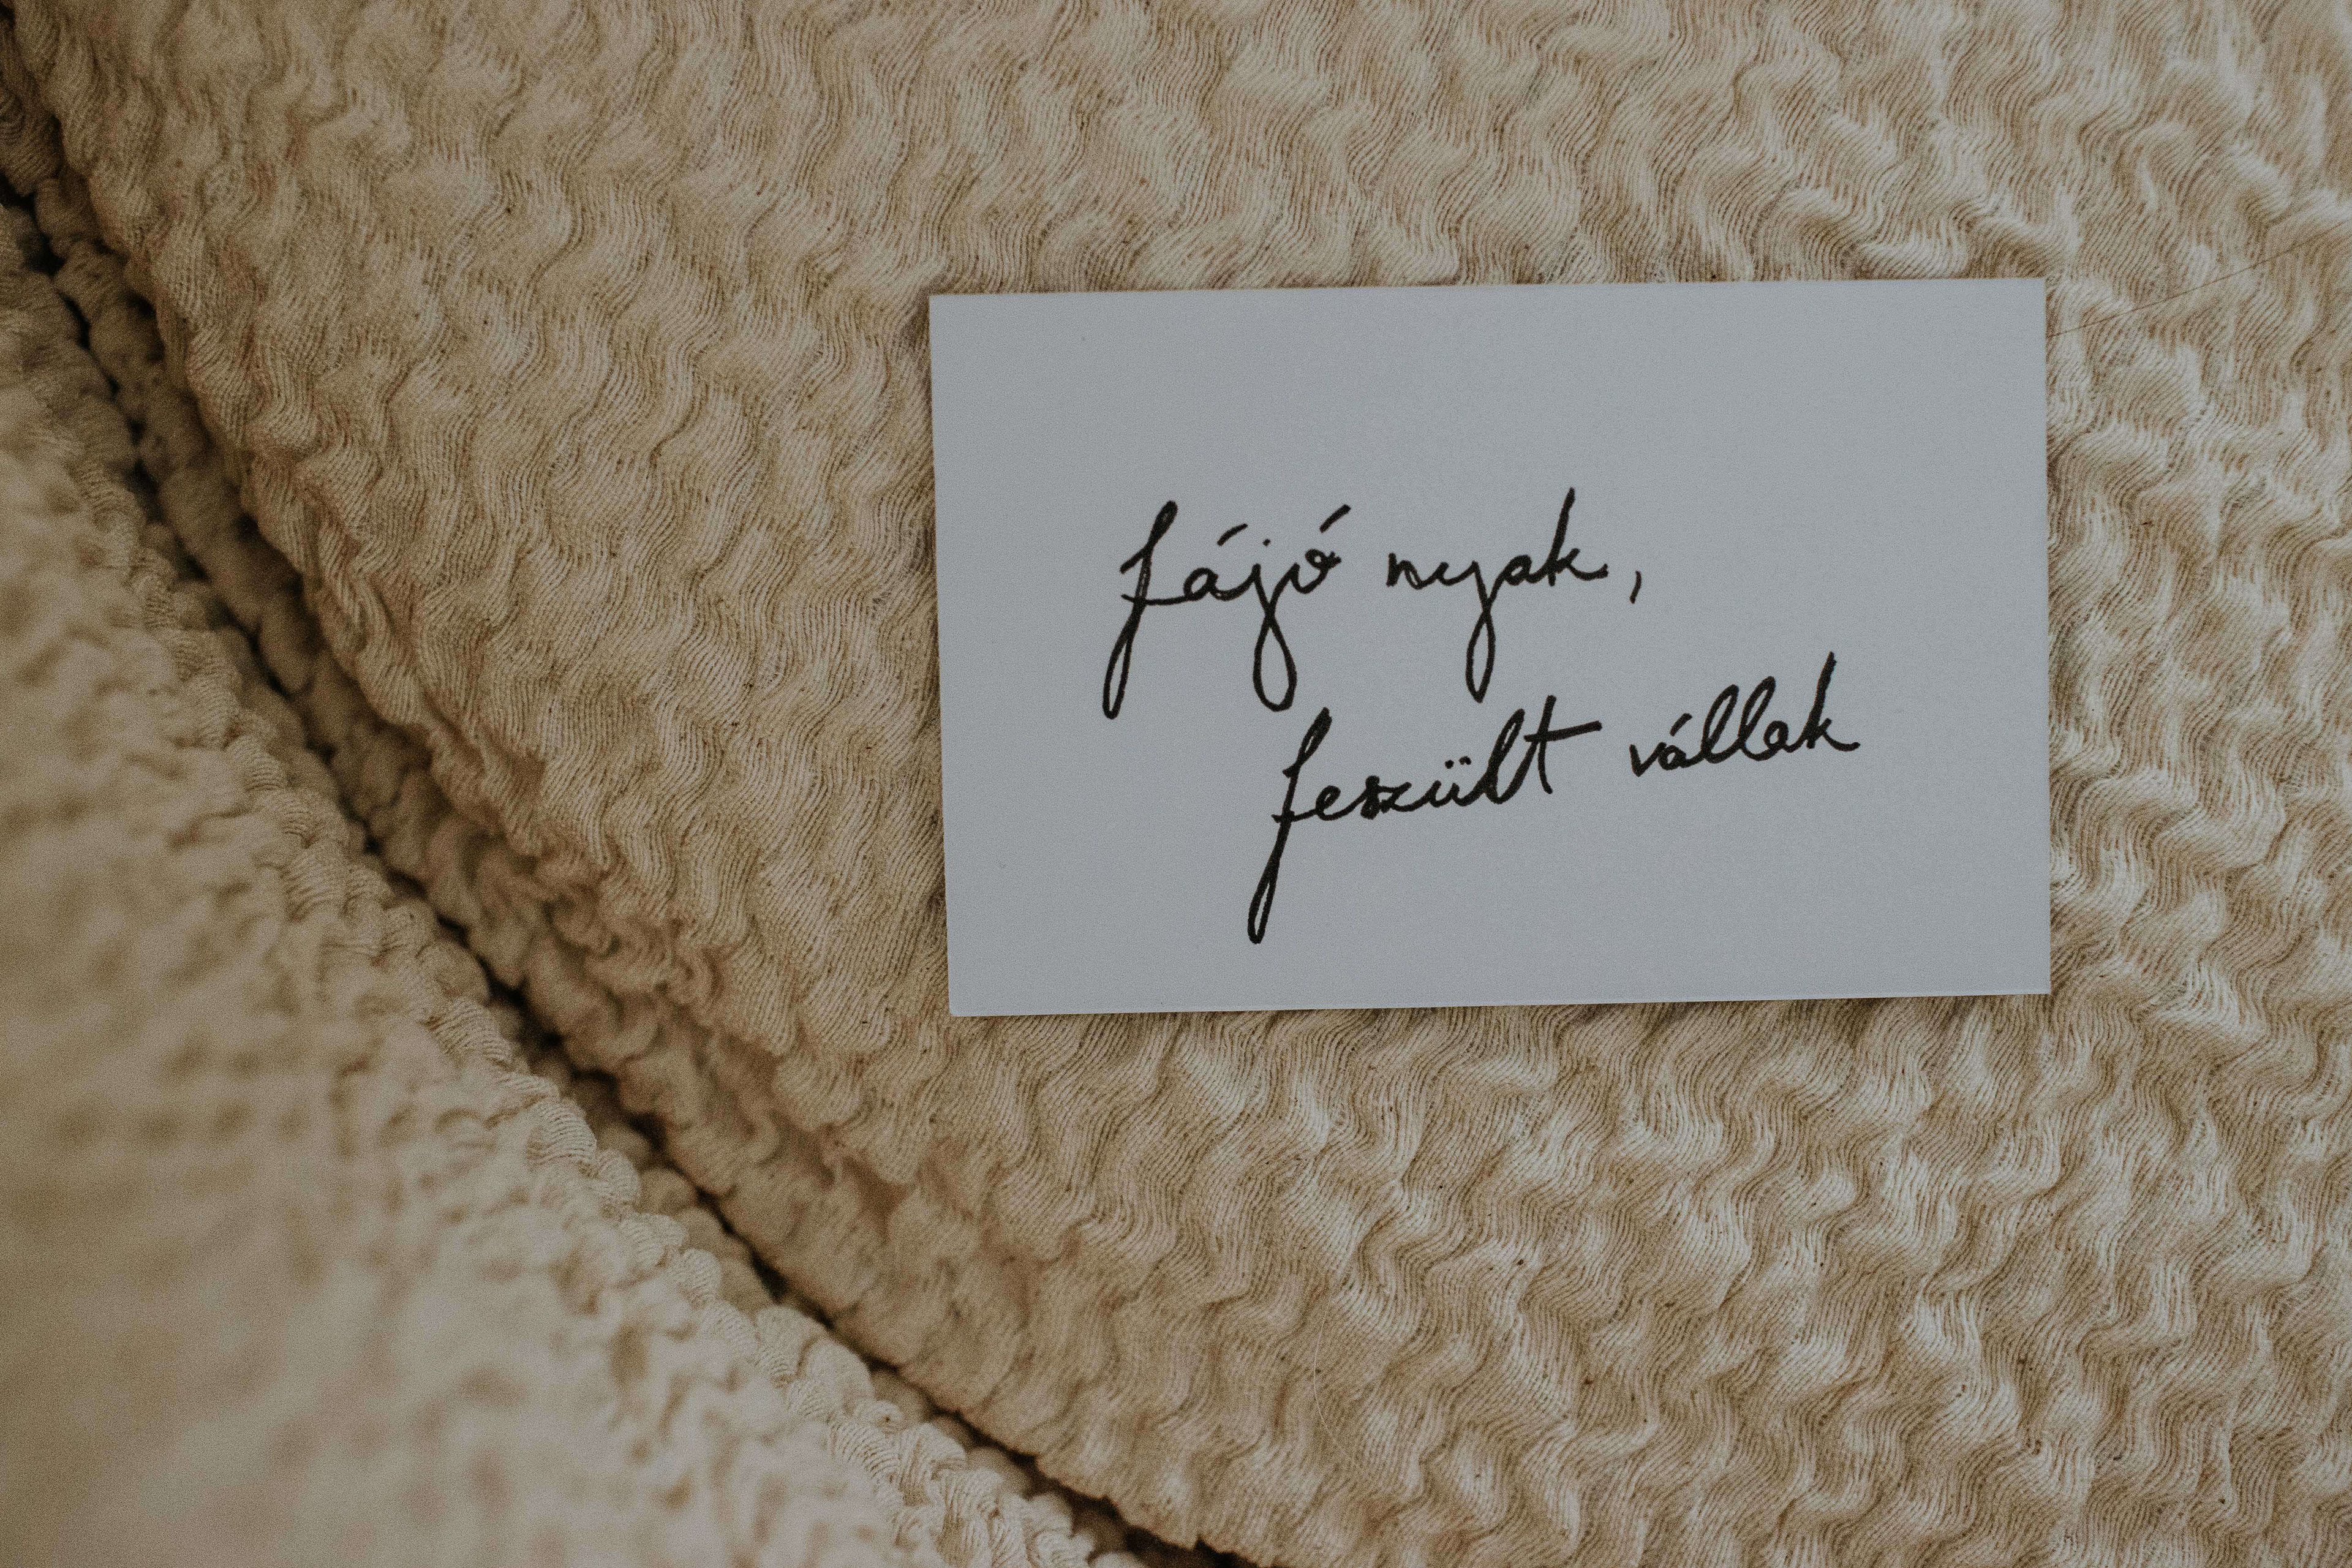 fájó nyak,
feszült vállak